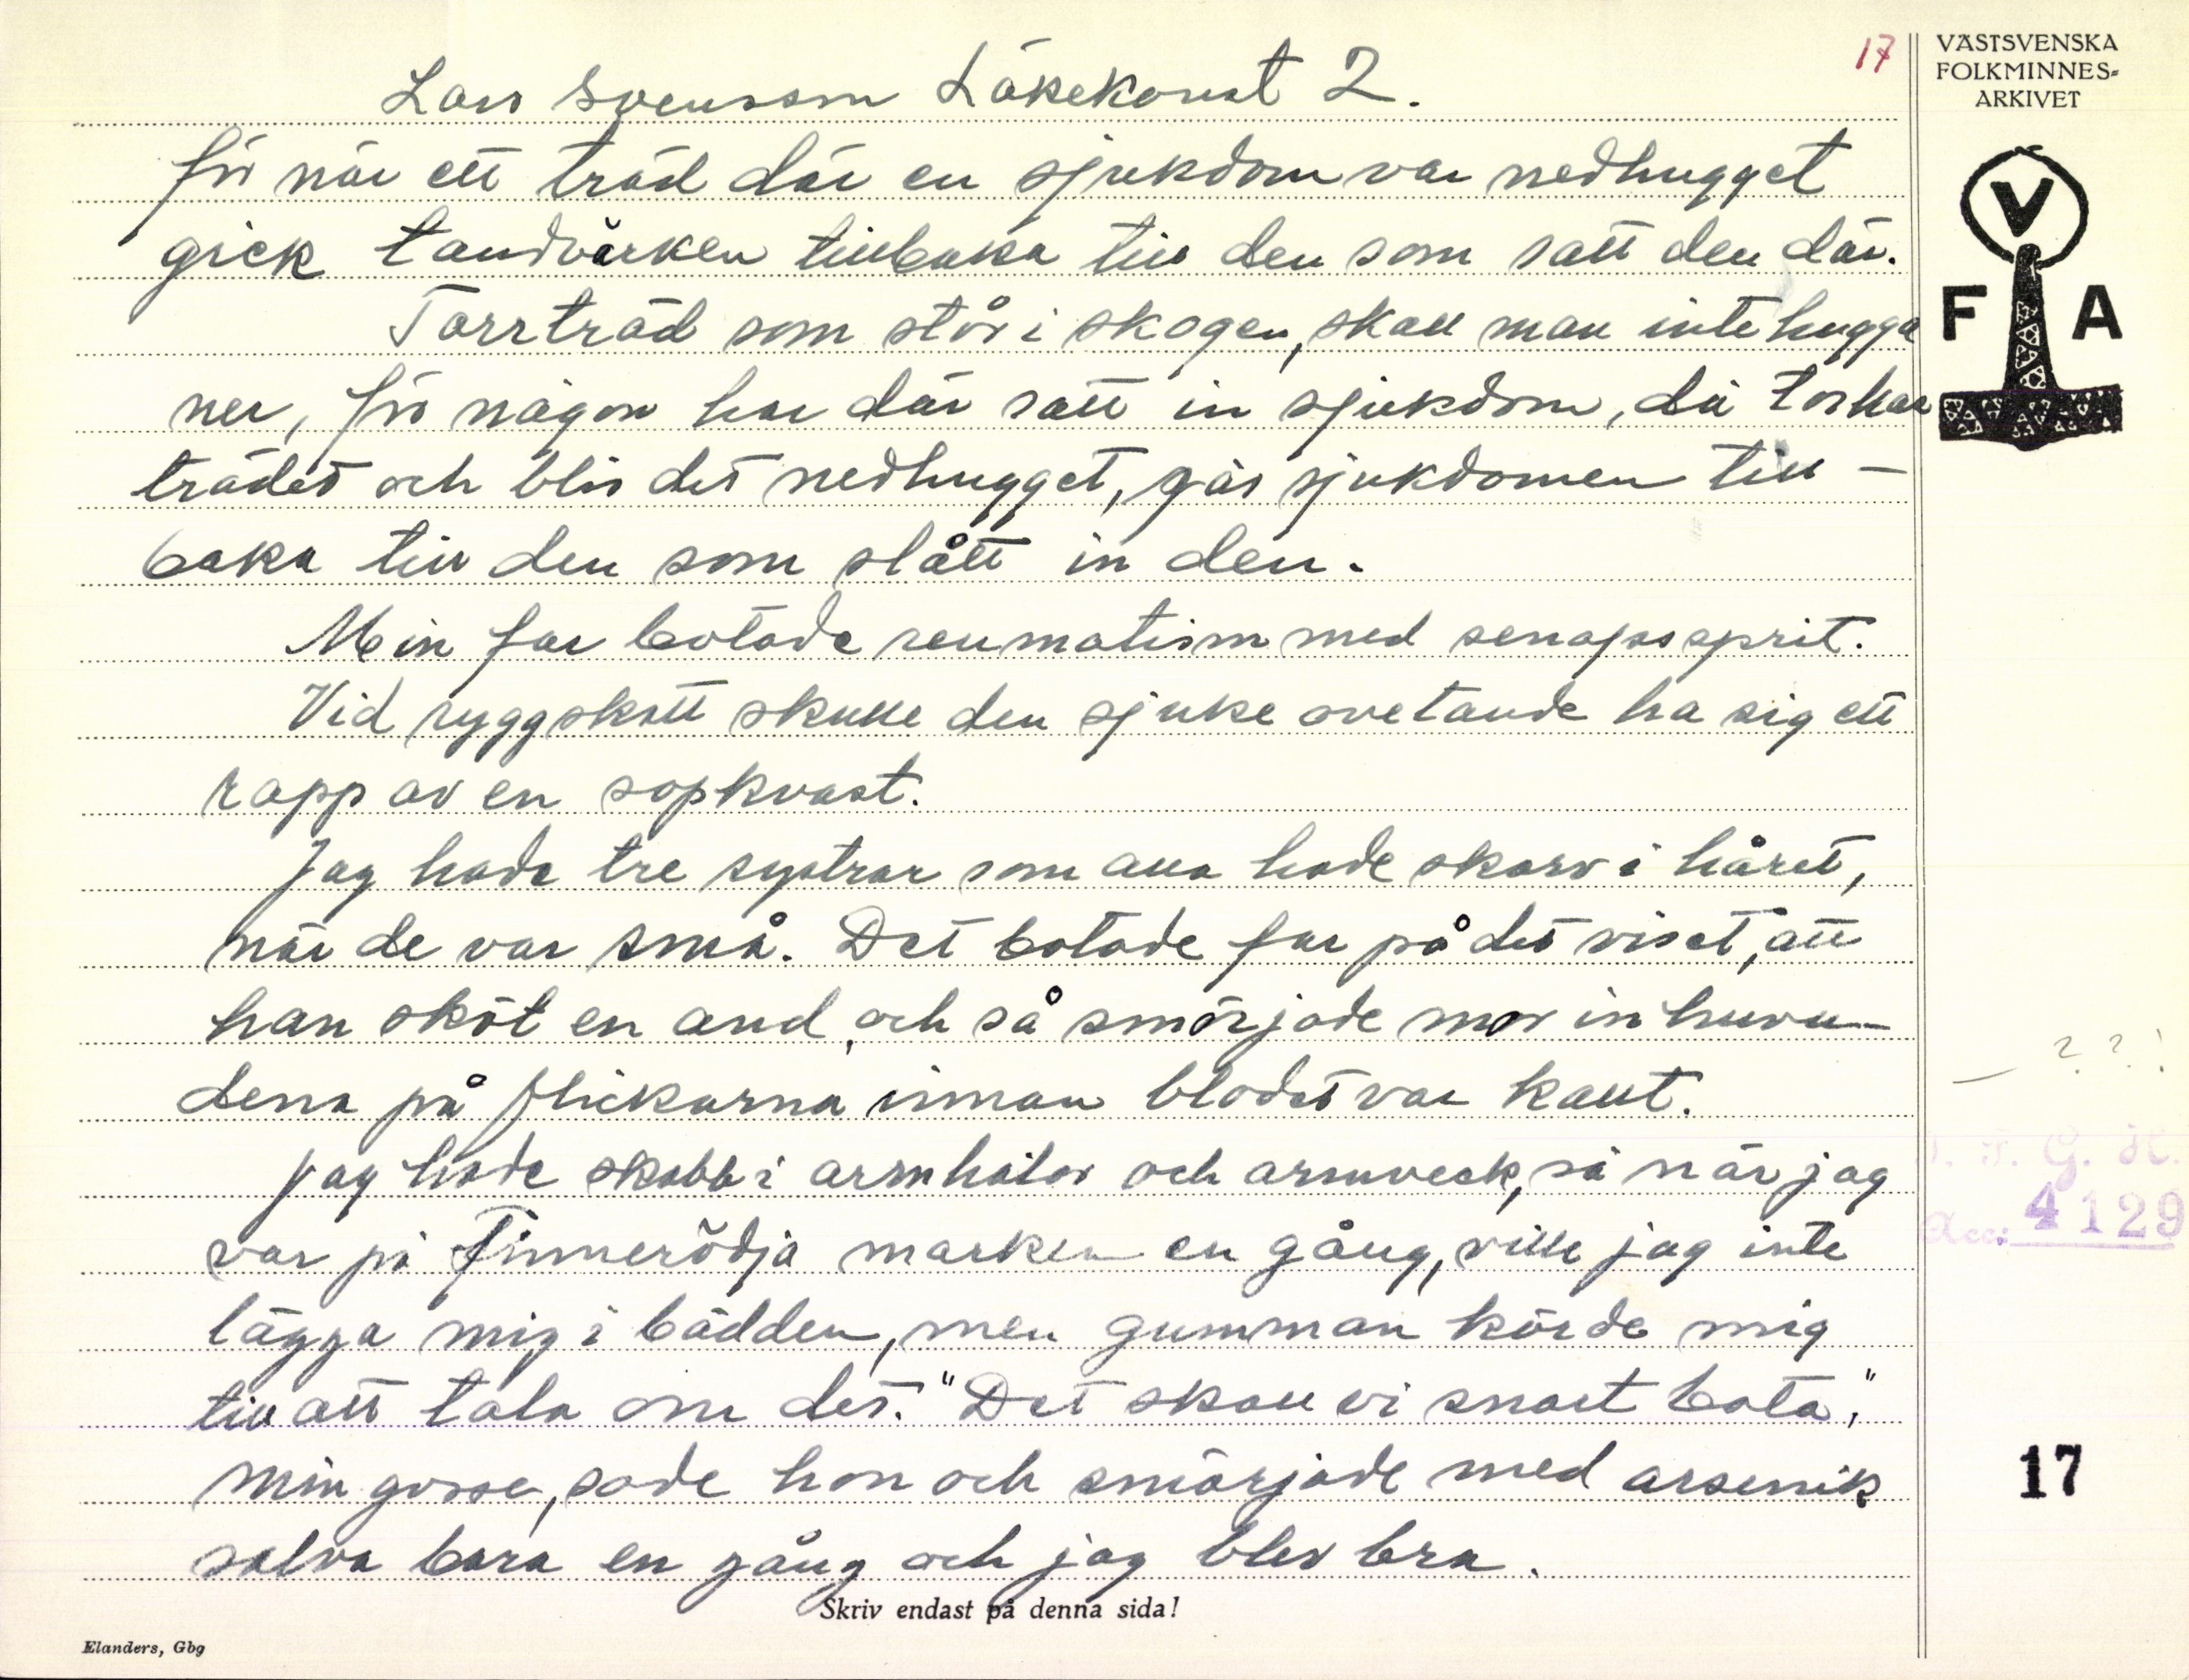 17
VÄSTSVENSKA
FOLKMINNES-
ARKIVET
V
F A
Lars Svensson Läkekonst 2.
för när ett träd där en sjukdom var nedhugget
gick tandvärken tillbaka till den som satt den där.
Torrträd som står i skogen, skall man inte hugga
ner, för någon har där satt in sjukdom, då torkar
trädet och blir det nedhugget, går sjukdomen till-
baka till den som slått in den.
Min far botade reumatism med senapssprit.
Vid ryggskott skulle den sjuke ovetande ha sig ett
rapp av en sopkvast.
Jag hade tre systrar som alla hade skorv i håret,
när de var små. Det botade far på det viset, att
han sköt en and, och så smörjade mor in huvu-
dena på flickorna innan blodet var kallt.
Jag hade skabb i armhålor och armveck, så när jag
var på Finnerödja marken en gång, ville jag inte
lägga mig i bädden, men gumman körde mig
till att tala om det. "Det skall vi snart bota,"
min gosse, sade hon och smörjade med arsenik
salva bara en gång och jag blev bra.
— ? ? !
Acc: 4129
17
Skriv endast på denna sida!
Elanders, Gbg